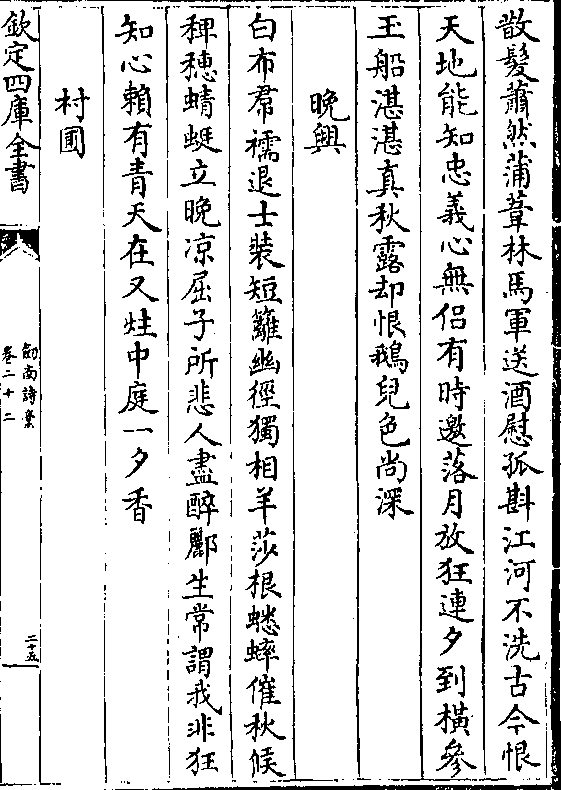 散髮蕭然蒲葦林馬軍送酒慰孤斟江河不洗古今恨
天地能知忠義心無侣有時邀落月放狂連夕到橫參
玉船湛湛真秋露却恨鵝兒色尚深
晚興
白布帬襦退士装短籬幽徑獨相羊莎根蟋蟀催秋候
稗穗蜻蜓立晚凉屈子所悲人盡醉酈生常謂我非狂
知心賴有青天在又炷中庭一夕香
村圃
欽定四庫全書
劒南詩稾
卷二十二
二十五